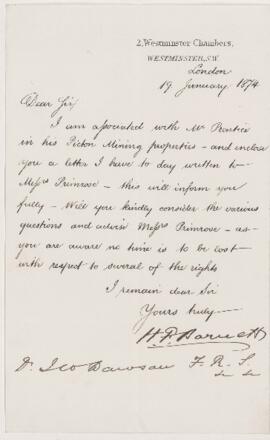 2, Westminster Chambers,
WESTMINSTER, S.W.
London
19 January 1874
Dear Sir
I am associated with Mr Prentice
in his Pictou Mining properties - and enclose
you a letter I have to day written to
Messrs Primrose - this will inform you
fully - Will you kindly consider the various
questions and advise Messrs Primrose - as
you are aware no time is to be lost
with respect to several of the rights
I remain dear Sir
Yours truly
H F Barnett
Dr J W Dawson F. R. S.